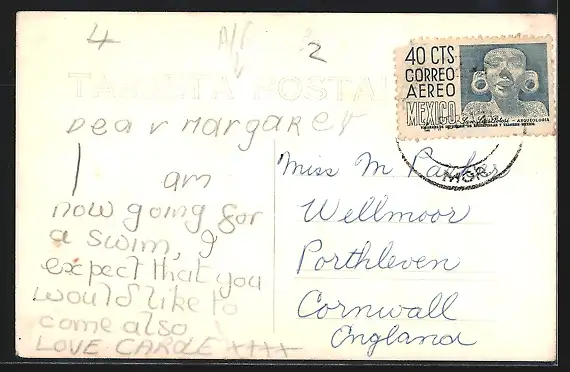 4
A/F
2
TARJETA POSTAL
40 CTS
CORREO
AEREO
MEXICO
San Luis Potosi - ARQUEOLOGIA
MOR
Dear Margaret
I am
now going for
a swim, I
expect that you
would like to
come also
LOVE CAROLE ++++
Miss M. Parke
Wellmoor
Porthleven
Cornwall
England